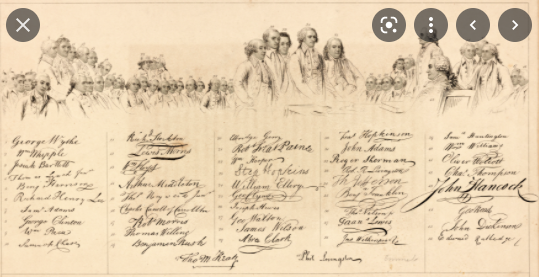 George Wythe
Wm Whipple
Josiah Bartlett
Benj Harrison
Richard Henry Lee
Sam Adams
George Clinton
Wm Paca
Samuel Chase
Richd Stockton
Lewis Morris
Arthur Middleton
Charles Carroll of Carrollton
Robt Morris
Thomas Willing
Benjamin Rush
Elbridge Gerry
Robt Treat Paine
Wm Hooper
Step Hopkins
William Ellery
Geo Clymer
Joseph Hewes
Geo Walton
James Wilson
Abra Clark
Fras Hopkinson
John Adams
Roger Sherman
Th Jefferson
Benj Franklin
Thos Nelson jr
Frans Lewis
Jno Witherspoon
Sam Huntington
Wm Williams
Oliver Wolcott
Chas Thompson
John Hancock
Geo Read
John Dickinson
Edward Rutledge
Tho M:Kean
Phil Livingston